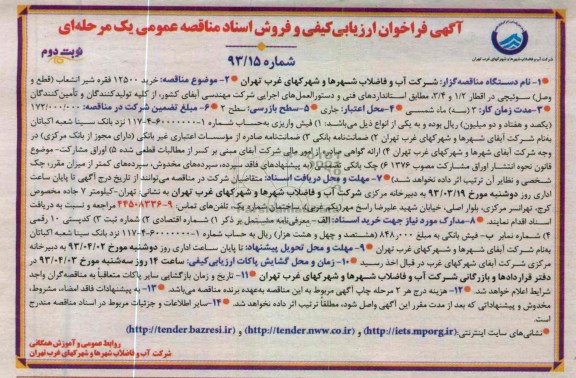 آگهی فراخوان ارزیابی کیفی و فروش اسناد مناقصه عمومی یک مرحله‌ای
شماره ۹۳/۱۵
نوبت دوم
شرکت آب و فاضلاب شهرها و شهرکهای غرب تهران
۱- نام دستگاه مناقصه‌گزار: شرکت آب و فاضلاب شهرها و شهرکهای غرب تهران ۲- موضوع مناقصه: خرید ۱۲۵۰۰ فقره شیر انشعاب (قطع و
وصل) سوئیچی در اقطار ۱/۲ و ۳/۴ مطابق استانداردهای فنی و دستورالعمل‌های اجرایی شرکت مهندسی آبفای کشور، از کلیه تولیدکنندگان و تأمین‌کنندگان
۳- مدت زمان کار: ۳ (سه) ماه شمسی ۴- محل اعتبار: جاری ۵- سطح بازرسی: سطح ۲ ۶- مبلغ تضمین شرکت در مناقصه: ۱۷۲/۰۰۰/۰۰۰
(یکصد و هفتاد و دو میلیون) ریال بوده و به یکی از انواع ذیل می‌باشند: ۱) فیش واریزی به‌حساب شماره ۱-۶۰۰۰۰۰۰-۴-۱۱۷ نزد بانک سینا شعبه اکباتان
به‌نام شرکت آبفای شهرها و شهرکهای غرب تهران ۲) ضمانت‌نامه بانکی ۳) ضمانت‌نامه صادره از مؤسسات اعتباری غیر بانکی (دارای مجوز از بانک مرکزی) در
وجه شرکت آبفای شهرها و شهرکهای غرب تهران ۴) ارائه گواهی صادره از امور مالی شرکت آبفای مبنی بر کسر از مطالبات قطعی شده ۵) اوراق مشارکت- موضوع
قانون نحوه انتشار اوراق مشارکت مصوب ۱۳۷۶ ۶) چک بانکی (به پیشنهادهای فاقد سپرده، سپرده‌های مخدوش، سپرده‌های کمتر از میزان مقرر، چک
شخصی و نظایر آن ترتیب اثر داده نخواهد شد.) ۷- مهلت و محل دریافت اسناد: متقاضیان شرکت در مناقصه می‌توانند از تاریخ درج آگهی تا پایان ساعت
اداری روز دوشنبه مورخ ۹۳/۰۳/۱۹ به دبیرخانه مرکزی شرکت آب و فاضلاب شهرها و شهرکهای غرب تهران به نشانی: تهران- کیلومتر ۷ جاده مخصوص
کرج، تهرانسر مرکزی، بلوار اصلی، خیابان شهید علیرضا راسخ مهر(یکم غربی)، ساختمان شماره یک، تلفن‌های تماس: ۹-۴۴۵۰۸۳۳۶ مراجعه و نسبت به دریافت
اسناد اقدام نمایند. ۸- مدارک مورد نیاز جهت خرید اسناد: الف- معرفی‌نامه مشتمل بر ذکر ۱) شماره اقتصادی ۲) شماره ثبت ۳) کدپستی ۱۰ رقمی
۴) شماره نمابر ب- فیش بانکی به مبلغ ۸۴۸٫۰۰۰ (هشتصد و چهل و هشت هزار) ریال به حساب شماره ۱-۶۰۰۰۰۰۰-۴-۱۱۷ نزد بانک سینا شعبه اکباتان
به‌نام شرکت آبفای شهرها و شهرکهای غرب تهران ۹- مهلت و محل تحویل پیشنهاد: تا پایان ساعت اداری روز دوشنبه مورخ ۹۳/۰۴/۰۲ به دبیرخانه
مرکزی شرکت آبفای شهرها و شهرکهای غرب تهران در قبال اخذ رسید ۱۰- زمان و محل گشایش پاکات ارزیابی کیفی: ساعت ۱۴ روز سه‌شنبه مورخ ۹۳/۰۴/۰۳ در
دفتر قراردادها و بازرگانی شرکت آب و فاضلاب شهرها و شهرکهای غرب تهران ۱۱- تاریخ و زمان بازگشایی سایر پاکات متعاقباً به مناقصه‌گران واجد
شرایط اعلام خواهد شد. ۱۲- هزینه درج هر ۲ مرحله چاپ آگهی مربوط به این مناقصه به‌عهده برنده مناقصه می‌باشد. ۱۳- به پیشنهادات فاقد امضاء، مشروط،
مخدوش و پیشنهاداتی که بعد از مدت مقرر این آگهی واصل شود، مطلقاً ترتیب اثر داده نخواهد شد. ۱۴- سایر اطلاعات و جزئیات مربوط در اسناد مناقصه مندرج
است.
نشانی‌های سایت اینترنتی: (http://iets.mporg.ir) و (http://tender.nww.co.ir) و (http://tender.bazresi.ir)
روابط عمومی و آموزش همگانی
شرکت آب و فاضلاب شهرها و شهرکهای غرب تهران